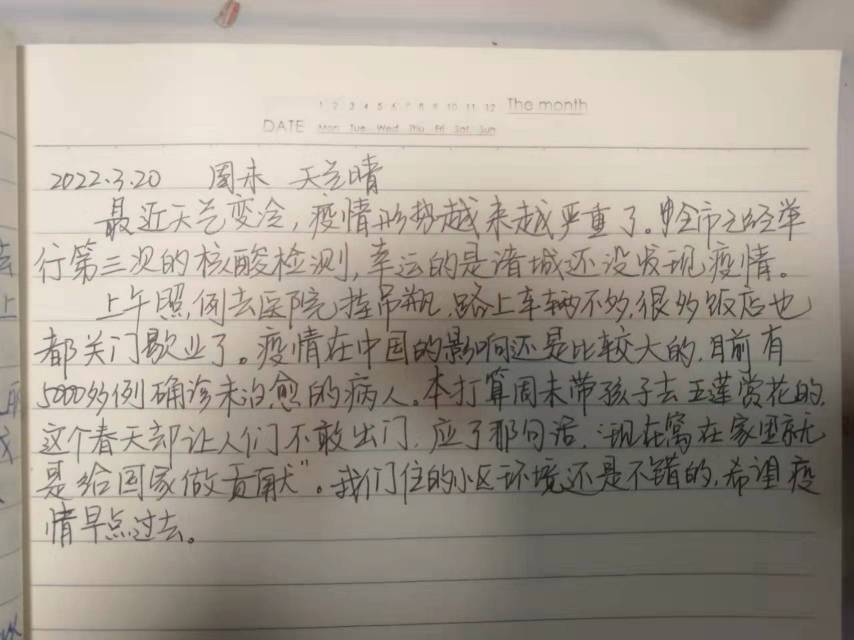 1 2 3 4 5 6 7 8 9 10 11 12 The month
DATE Mon Tue Wed Thu Fri Sat Sun
2022.3.20 周末 天气晴
最近天气变冷,疫情形势越来越严重了。全市已经举
行第三次的核酸检测,幸运的是诸城还没发现疫情。
上午照例去医院挂吊瓶,路上车辆不多,很多饭店也
都关门歇业了。疫情在中国的影响还是比较大的,目前有
5000多例确诊未治愈的病人。本打算周末带孩子去玉莲赏花的,
这个春天却让人们不敢出门,应了那句话,“现在窝在家里就
是给国家做贡献”。我们住的小区环境还是不错的,希望疫
情早点过去。